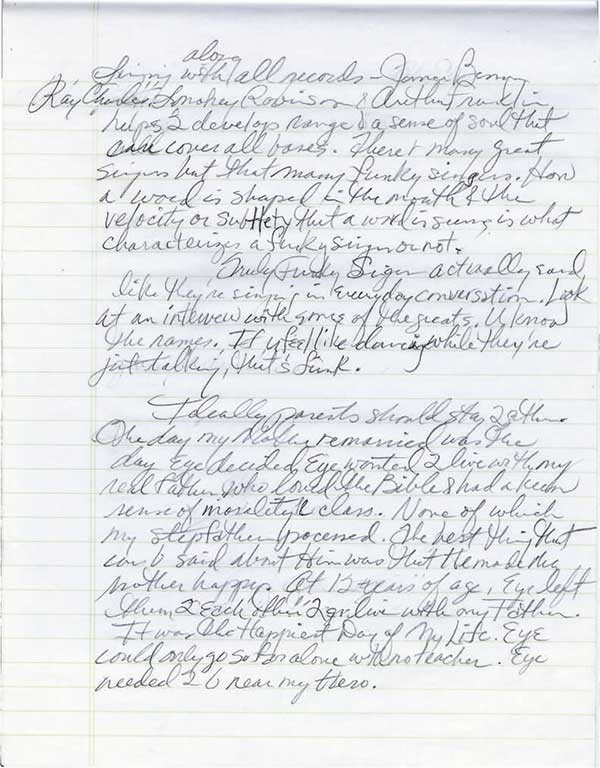 along
Singing with all records – James Brown
Ray Charles, Smokey Robinson & Aretha Franklin
helps 2 develop range & a sense of soul that
can cover all bases. There R many great
singers but that many funky singers. How
a word is shaped in the mouth & the
velocity or subtlety that a word is sung is what
characterizes a funky singer or not.
Truly Funky Singers actually sound
like they're singing in everyday conversation. Look
at an interview with some of the greats. U know
the names. If u feel like dancing while they're
just talking, that's funk.
Ideally parents should stay 2gether.
The day my Mother remarried was the
day Eye decided Eye wanted 2 live with my
real father who loved the Bible & had a keen
sense of morality & class. None of which
my stepfather possessed. The best thing that
can b said about Him was that He made My
mother happy. At 12 years of age, Eye left
them 2 Each Other 2 go live with my Father.
It was the Happiest Day of My Life. Eye
could only go so far alone with no teacher. Eye
needed 2 b near my Hero.